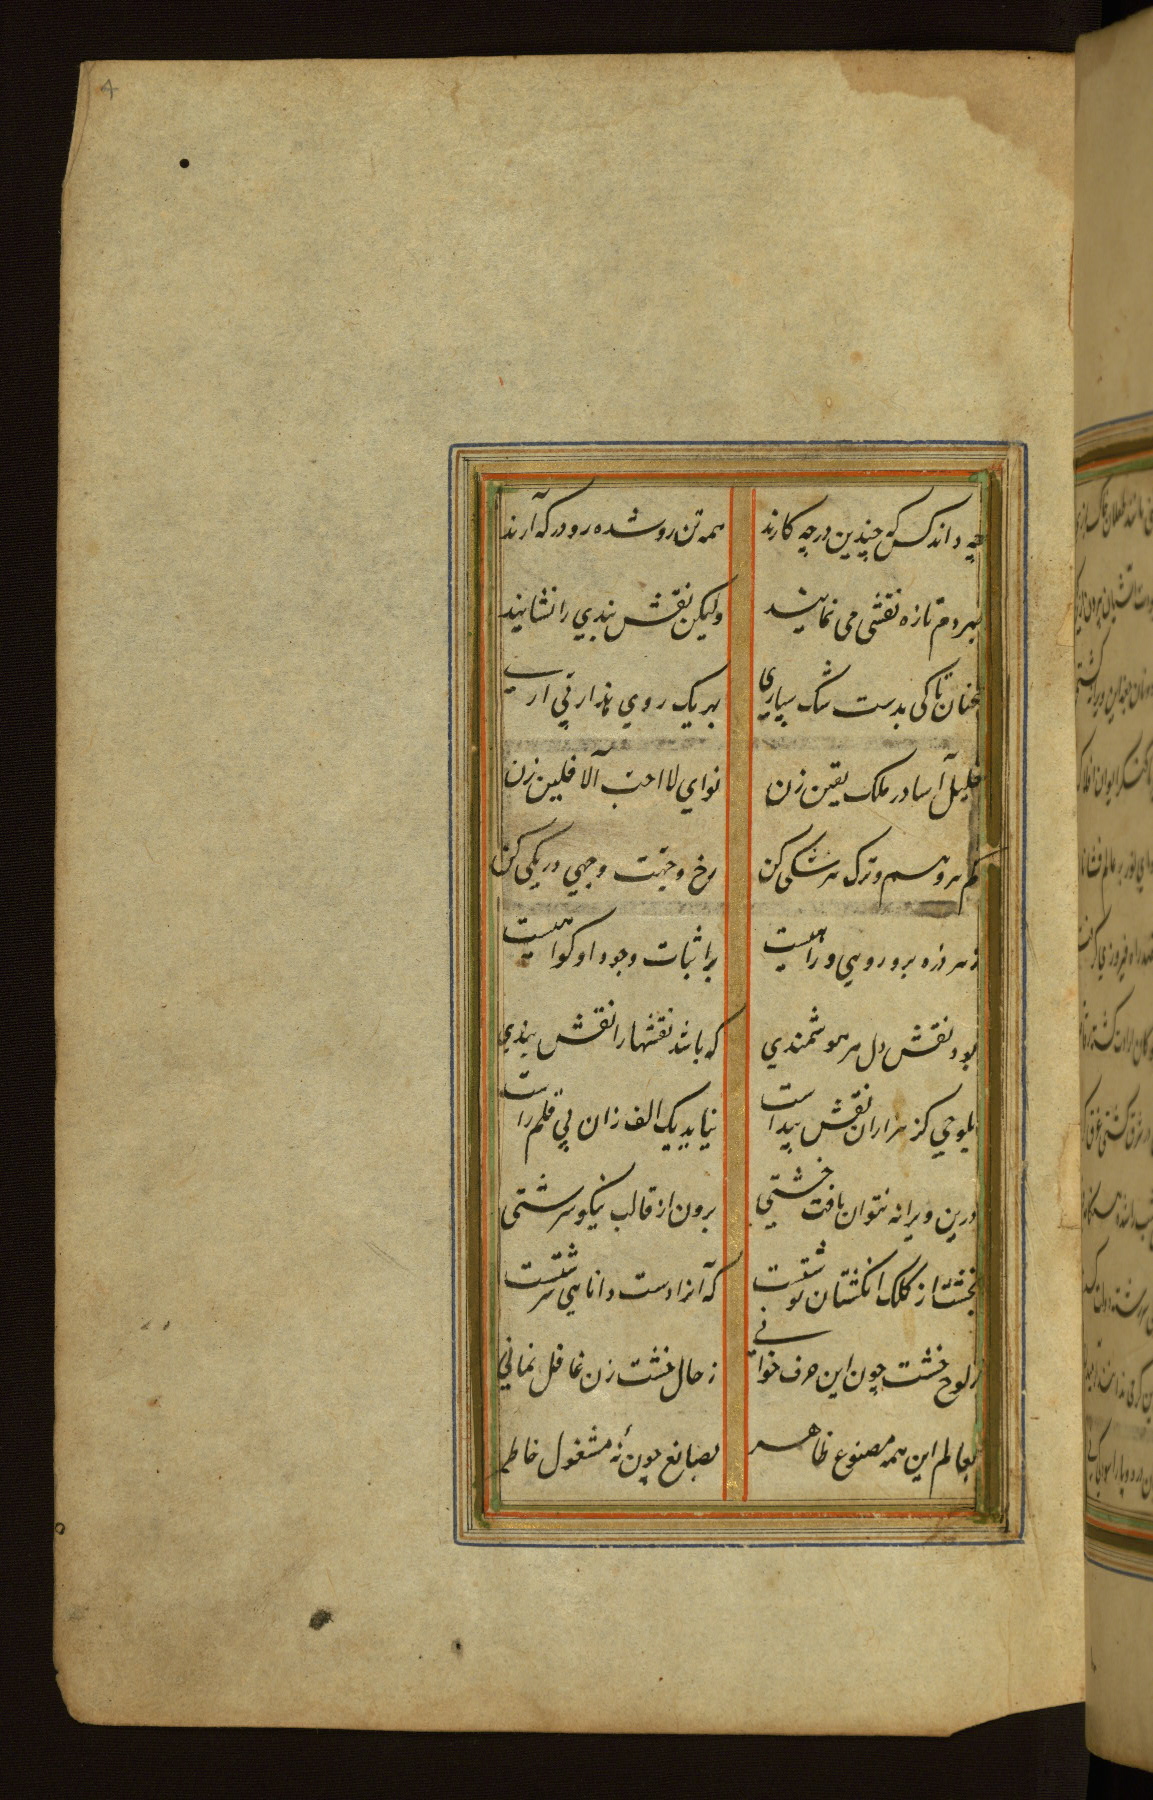 4
چه داند کس که چندین درچه کارند همه تن رو شده رو در که آرند
بهر دم تازه نقشی می نمایند ولیکن نقش بندی را نشایند
عنان تا کی بدست شک سپاری بهر یک روی هذا ربی آری
خلیل آسا در ملک یقین زن نوای لا احب الآفلین زن
کم هر وهم و ترک هر شکی کن رخ وجهت وجهی در یکی کن
ز هر ذره برو رویی و راهیست بر اثبات وجود او کواهیست
بود نقش دل هر هوشمندی که باشد نقشها را نقش بندی
بلوحی کز هزاران نقش پیداست نیاید یک الف زان بی قلم راست
درین ویرانه نتوان یافت خشتی برون از قالب نیکو سرشتی
بخشت از کلک انکشتان نوشتست که آنرا دست دانایی سرشتست
ز لوح خشت چون این حرف خوانی ز حال خشت زن غافل نمانی
بعالم این همه مصنوع ظاهر بصانع چون نهٔ مشغول خاطر